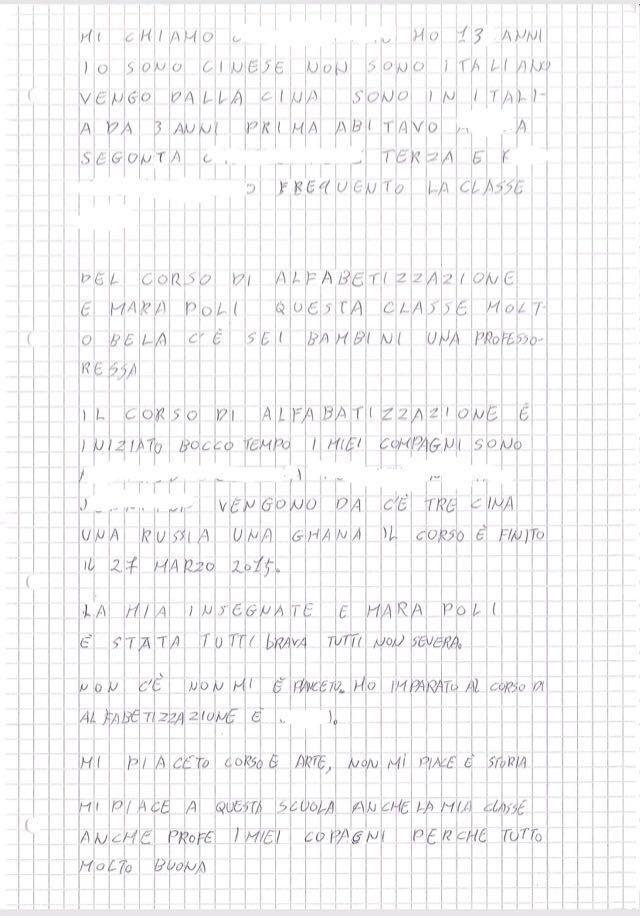 MI CHIAMO HO 13 ANNI
IO SONO CINESE NON SONO ITALIANO
VENGO DALLA CINA SONO IN ITALI-
A DA 3 ANNI PRIMA ABITAVO A
SEGONTA TERZA E
FREQUENTO LA CLASSE
DEL CORSO DI ALFABETIZZAZIONE
E MARA POLI QUESTA CLASSE MOLT-
O BELA C'È SEI BAMBINI UNA PROFESSO-
RESSA
IL CORSO DI ALFABATIZZAZIONE È
INIZIATO BOCCO TEMPO I MIEI COMPAGNI SONO
VENGONO DA C'È TRE CINA
UNA RUSSIA UNA GHANA IL CORSO È FINITO
IL 27 MARZO 2015.
LA MIA INSEGNATE E MARA POLI
E STATA TUTTI BRAVA TUTTI NON SEVERA.
NON C'È NON MI È PIANCETO. HO IMPARATO AL CORSO DI
ALFABETIZZAZIONE E
MI PIACETO CORSO E ARTE, NON MI PIACE È STORIA
MI PIACE A QUESTA SCUOLA ANCHE LA MIA CLASSE
ANCHE PROFE I MIEI COPAGNI PERCHE TUTTO
MOLTO BUONA